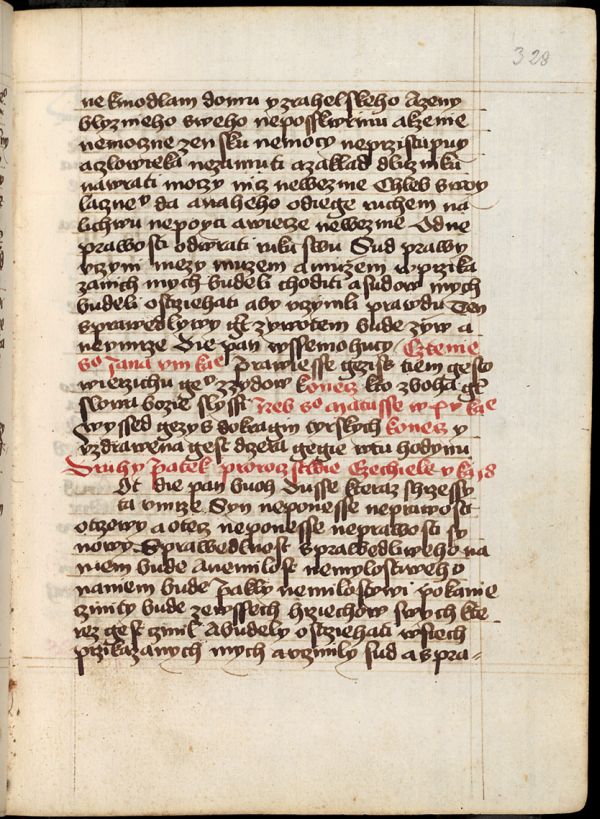 328
ne kmodlam domu yzrahelskeho Azeny
blyznieho sweho neposskwrnil akzenie
nemoczne zensku nemocy neprzistupuy
aczlowieka nezamuti azaklad dluznikū
nawrati moczy nicz newezme Chleb swoy
laczneº da anaheho odiege ruchem na
lichwu nepoyci awiecze newezme Od ne
prawosti odwrati ruku swu Sud prawy
vczyni mezy muzem a muzem wprzika
zanich mych budeli choditi asudow mych
budeli ostrziehati aby vczynil prawdu Ten
sprawedlywy gest zywotem bude zyw a
neumrze Die pan wssemohucy Cztenie
sº Jana viii kae prawiesse gezisś tiem gesto
wierzichu geº zzydow konecz kto zboha gest
slowa bozie slyssi Neb sº Matusse w xv kae
wyssed gezys dokragin tyrskych konecz y
vzdrawena gest dzera gegie wtu hodynu
Druhy patek proroczstwie Ezechiele v ka 18
Ot die pan buoh dusse kteraz shrzessy
ta vmrze Syn neponesse neprawosti
otczowy a otecz neponesse neprawosti sy
nowy Sprawedlnost sprawedliweho na
niem bude Anemilost nemylostiweho
naniem bude Pakly nemilostiwi pokanie
czinity bude zewssech hrziechow swych kte
rez gest czinil Abudely ostrziehati wssiech
przikazanych mych a vczinily sud a spra-